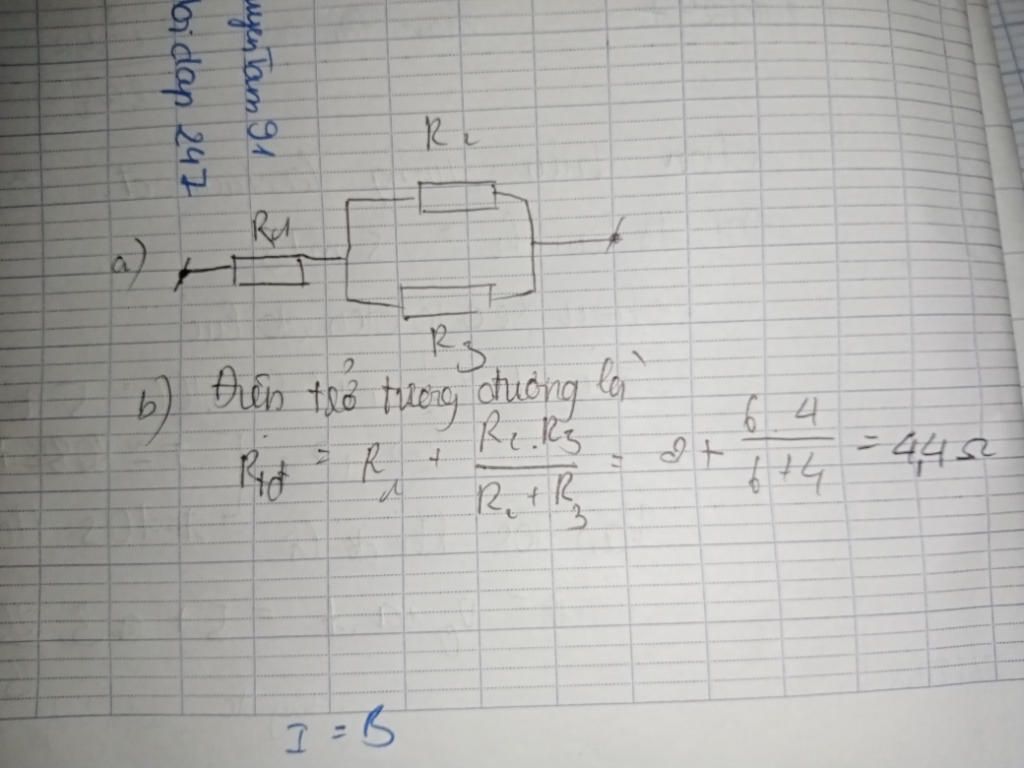 uyenTam91
oidap 247
R₂
R1
a)
R3
b) Điện trở tương đương là
Rtđ = R1 + R₂.R3 / R₂ + R3 = 2 + 6.4 / 6+4 = 4,4 Ω
I = B